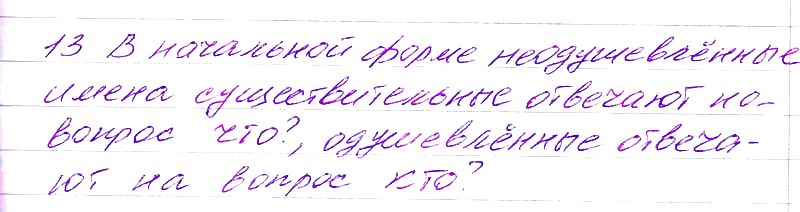 13 В начальной форме неодушевлённые
имена существительные отвечают но-
вопрос что?, одушевлённые отвеча-
ют на вопрос кто?